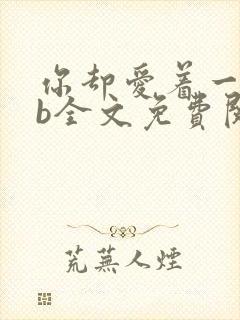 你却愛着一
b全文免費閱
荒蕪人煙